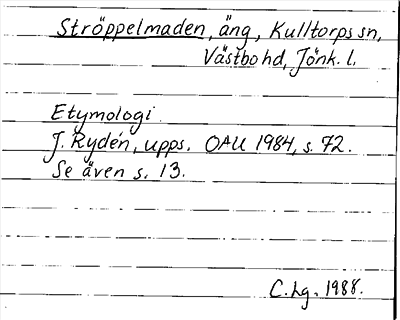 Ströppelmaden, äng, Kulltorps sn,
Västbo hd, Jönk. l.
Etymologi
J. Rydén, upps. OAU 1984, s. 72.
Se även s. 13.
C. Lg. 1988.